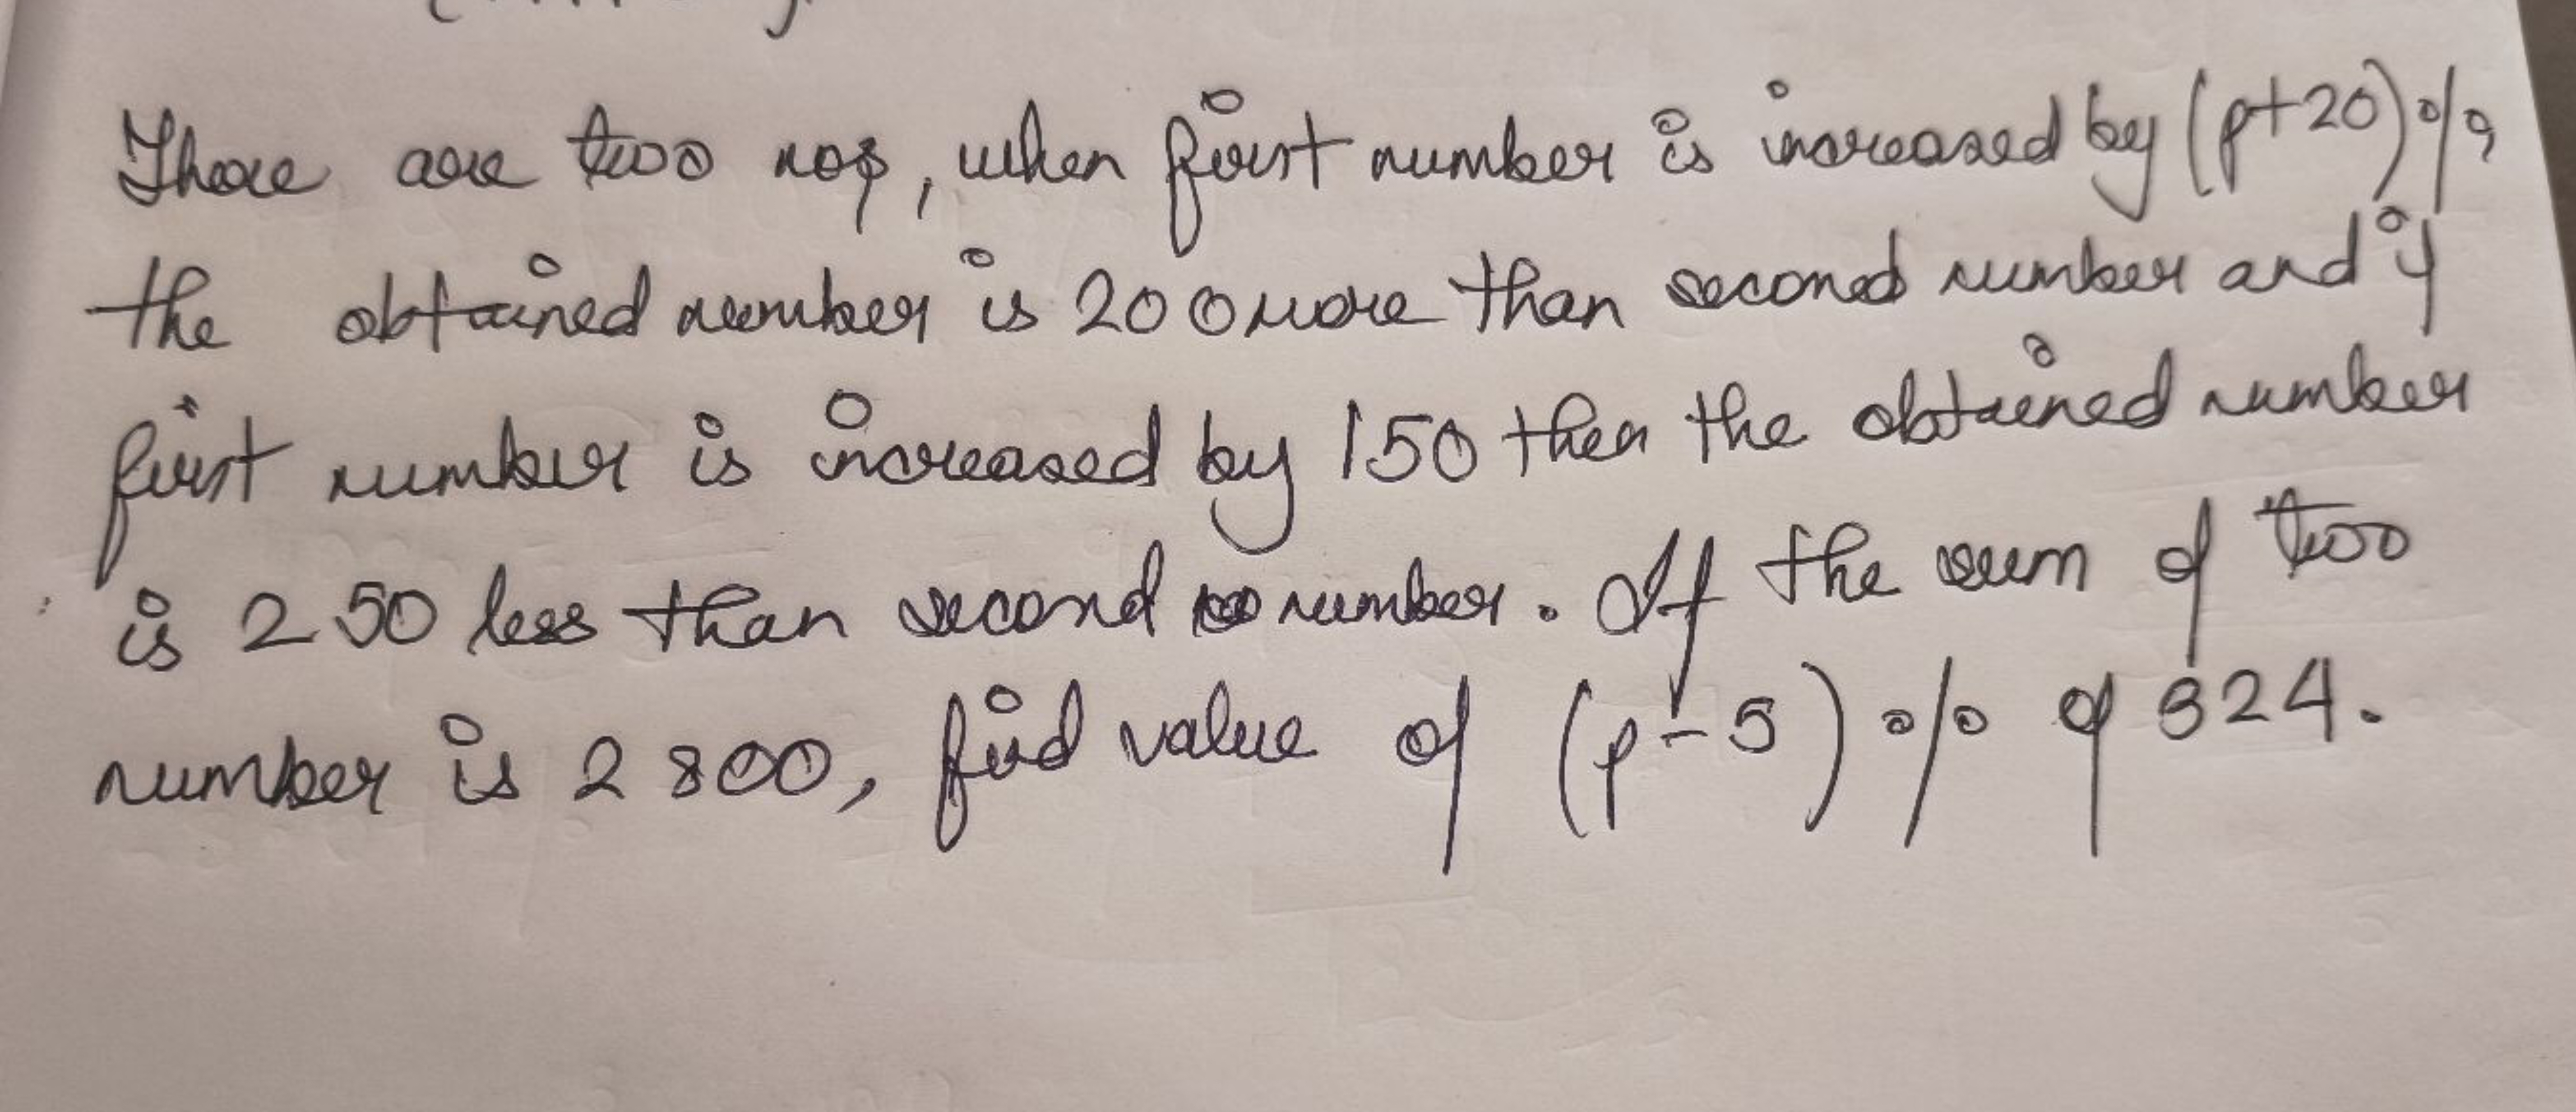 There are two nos, when first number is increased by (p+20)%,
the obtained number is 200 more than second number and if
first number is increased by 150 then the obtained number
is 250 less than second number. If the sum of two
number is 2800, find value of (p-5)% of 324.